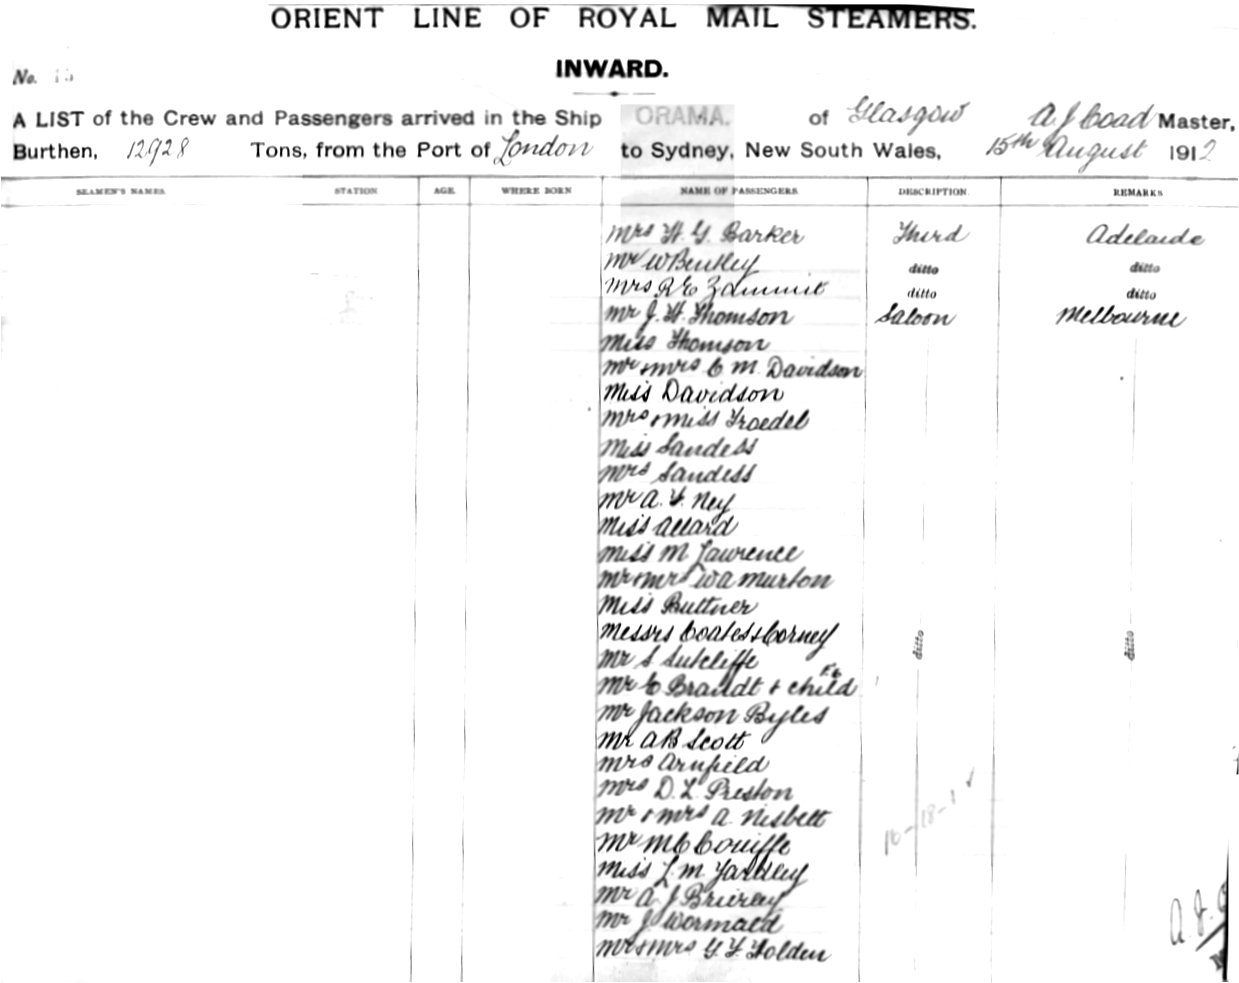 ORIENT LINE OF ROYAL MAIL STEAMERS.
INWARD.
No. 15
A LIST of the Crew and Passengers arrived in the Ship ORAMA. of Glasgow A J Coad Master,
Burthen, 12928 Tons, from the Port of London to Sydney, New South Wales, 15th August 1912
SEAMEN'S NAMES STATION AGE WHERE BORN NAME OF PASSENGERS DESCRIPTION. REMARKS
Mrs H. G. Barker Third Adelaide
Mr W Bentley ditto ditto
Mrs R E Zammit ditto ditto
Mr J. H. Thomson Saloon Melbourne
Miss Thomson
Mr & Mrs C M. Davidson
Miss Davidson
Mrs & Miss Troedel
Miss Sandess
Mrs Sandess
Mr A. Ney
Miss Allard
Miss M Lawrence
Mr & Mrs W A Murton
Miss Buttner
Messrs Coates & Corney ditto ditto
Mr S Sutcliffe
Mr C Brandt & child
Mr Jackson Byles
Mr A B Scott
Mrs Armfield
Mrs D. L. Preston
Mr & Mrs A. Nisbett
Mr M C Couiffe
16-18-1
Miss L. M Yardley
Mr A J Brierley
Mr J Wormald
A. J.
Mr & Mrs G. F. Holden